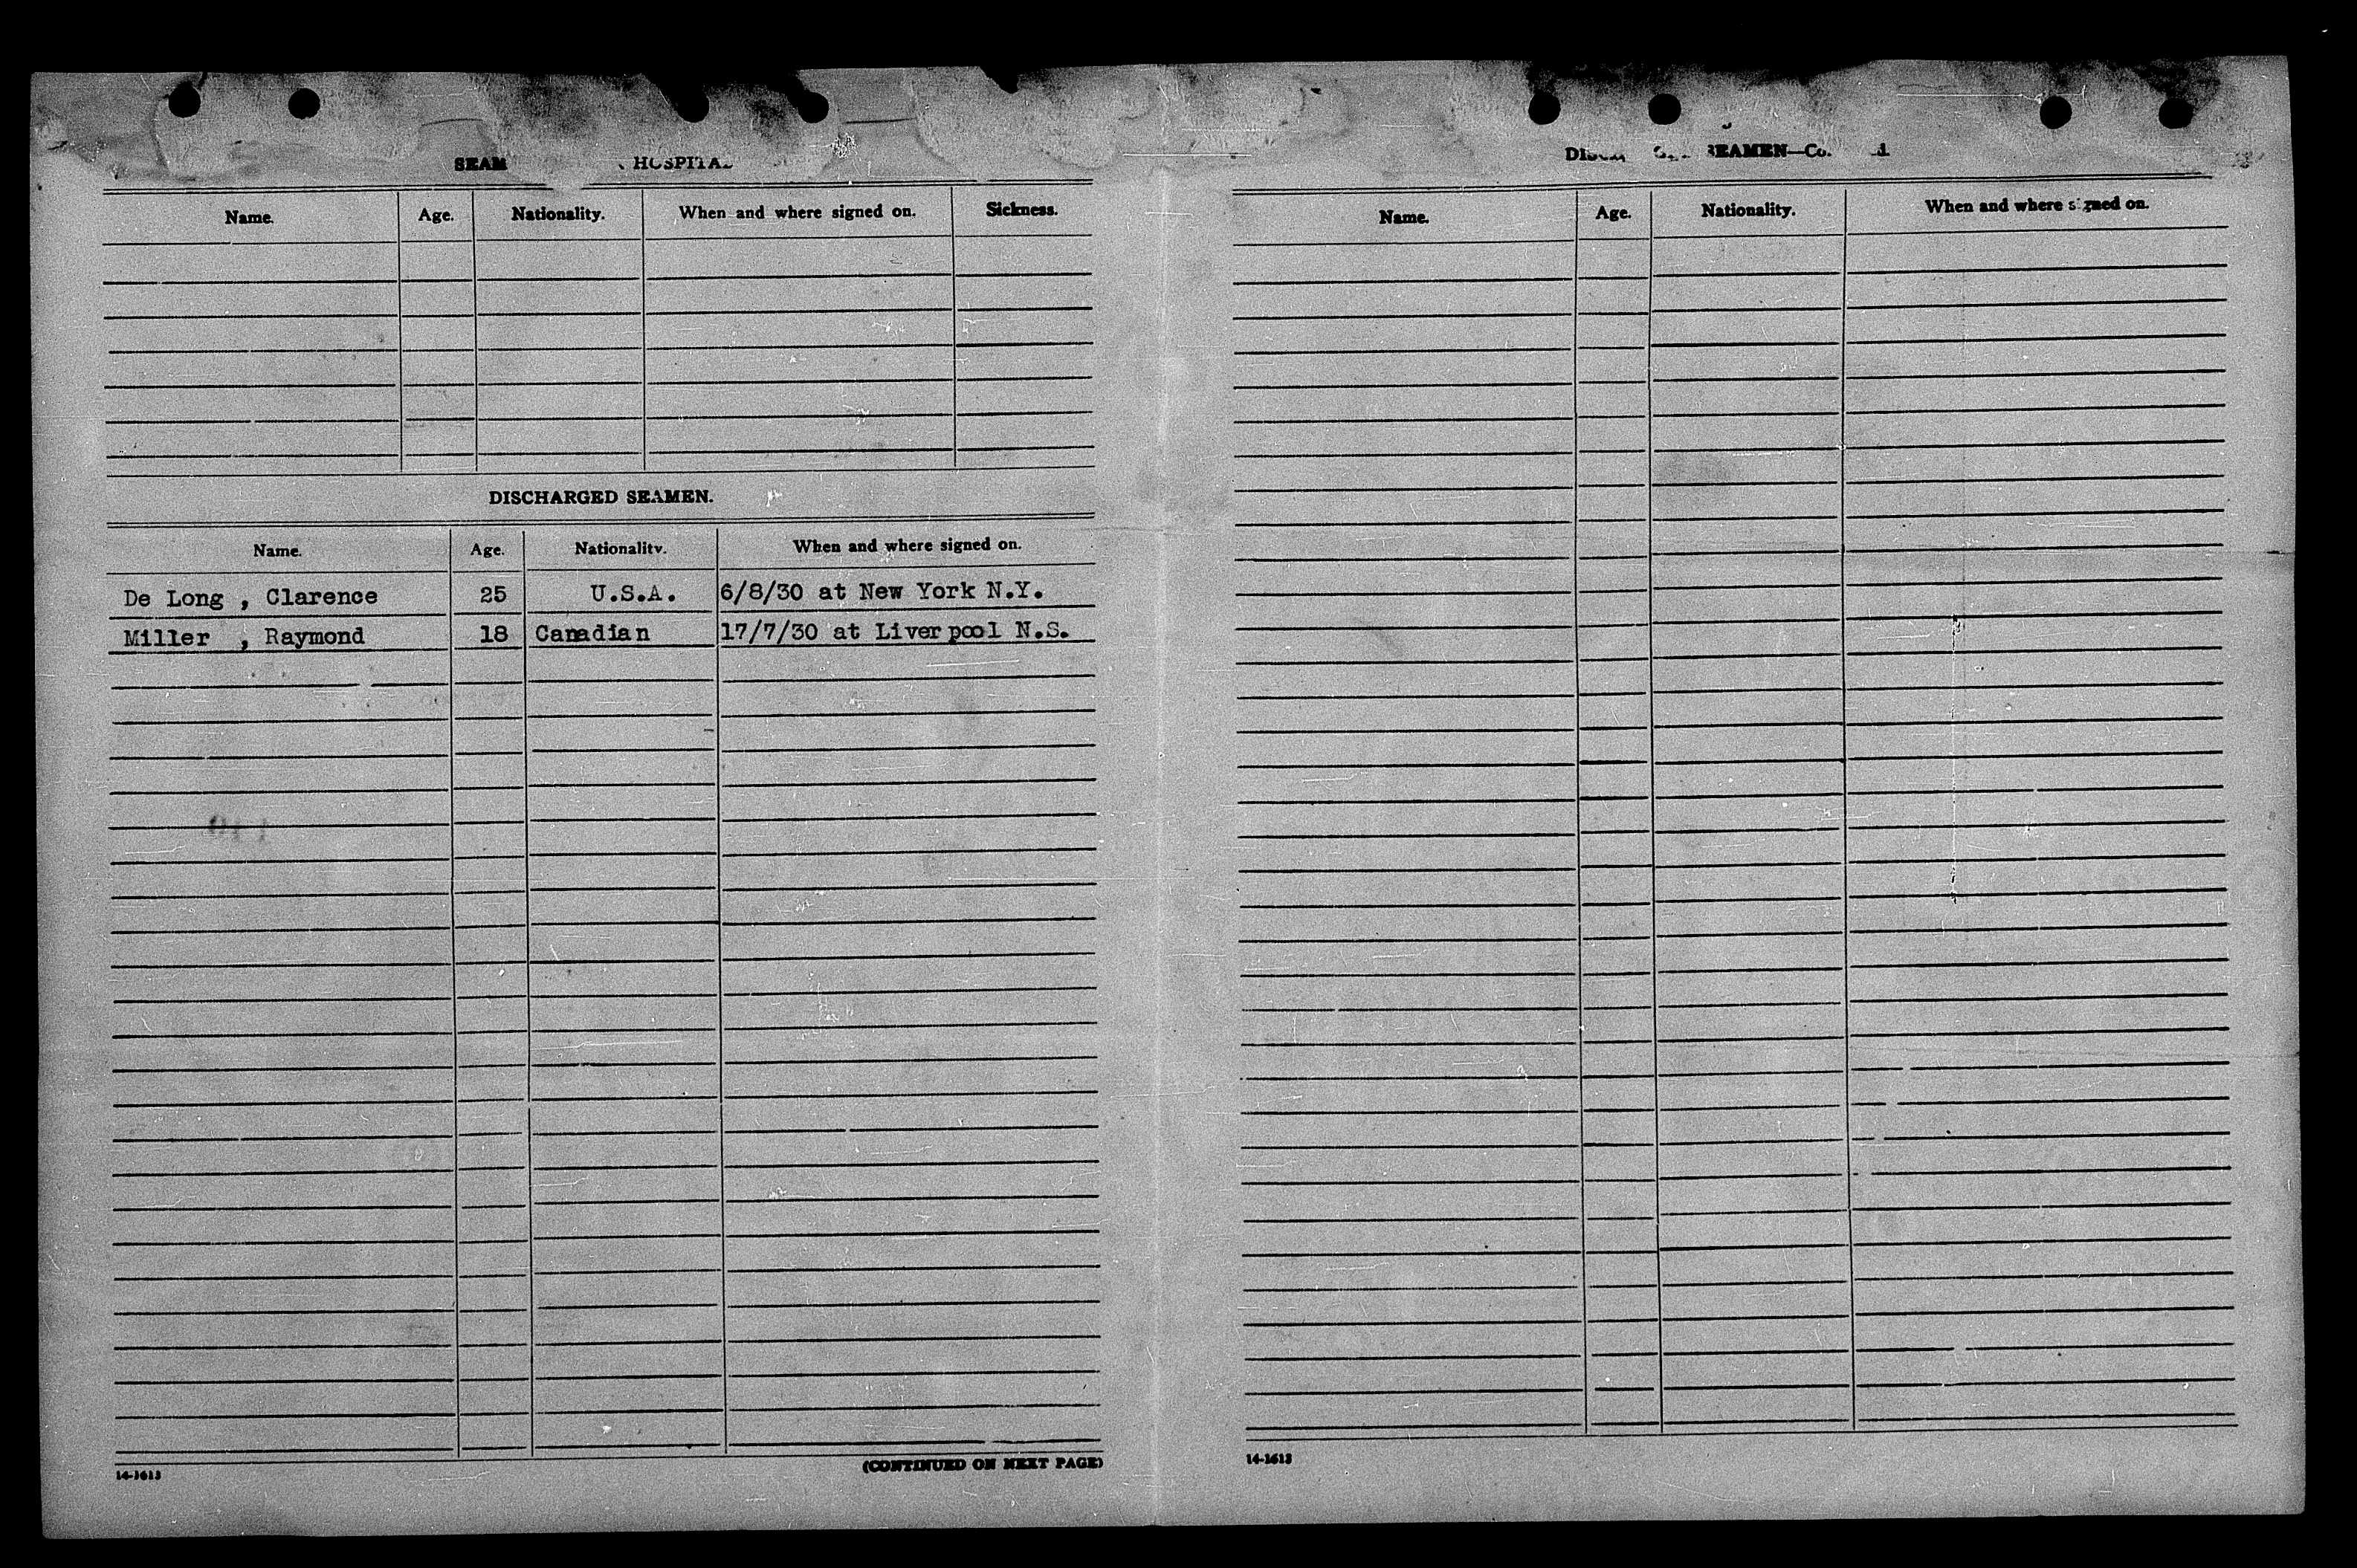 HOSPITAL
Name. Age. Nationality. When and where signed on. Sickness.
DISCHARGED SEAMEN.
Name. Age. Nationality. When and where signed on.
De Long , Clarence 25 U.S.A. 6/8/30 at New York N.Y.
Miller , Raymond 18 Canadian 17/7/30 at Liverpool N.S.
14-1613 (CONTINUED ON NEXT PAGE)
SEAMEN
Name. Age. Nationality. When and where signed on.
14-1613